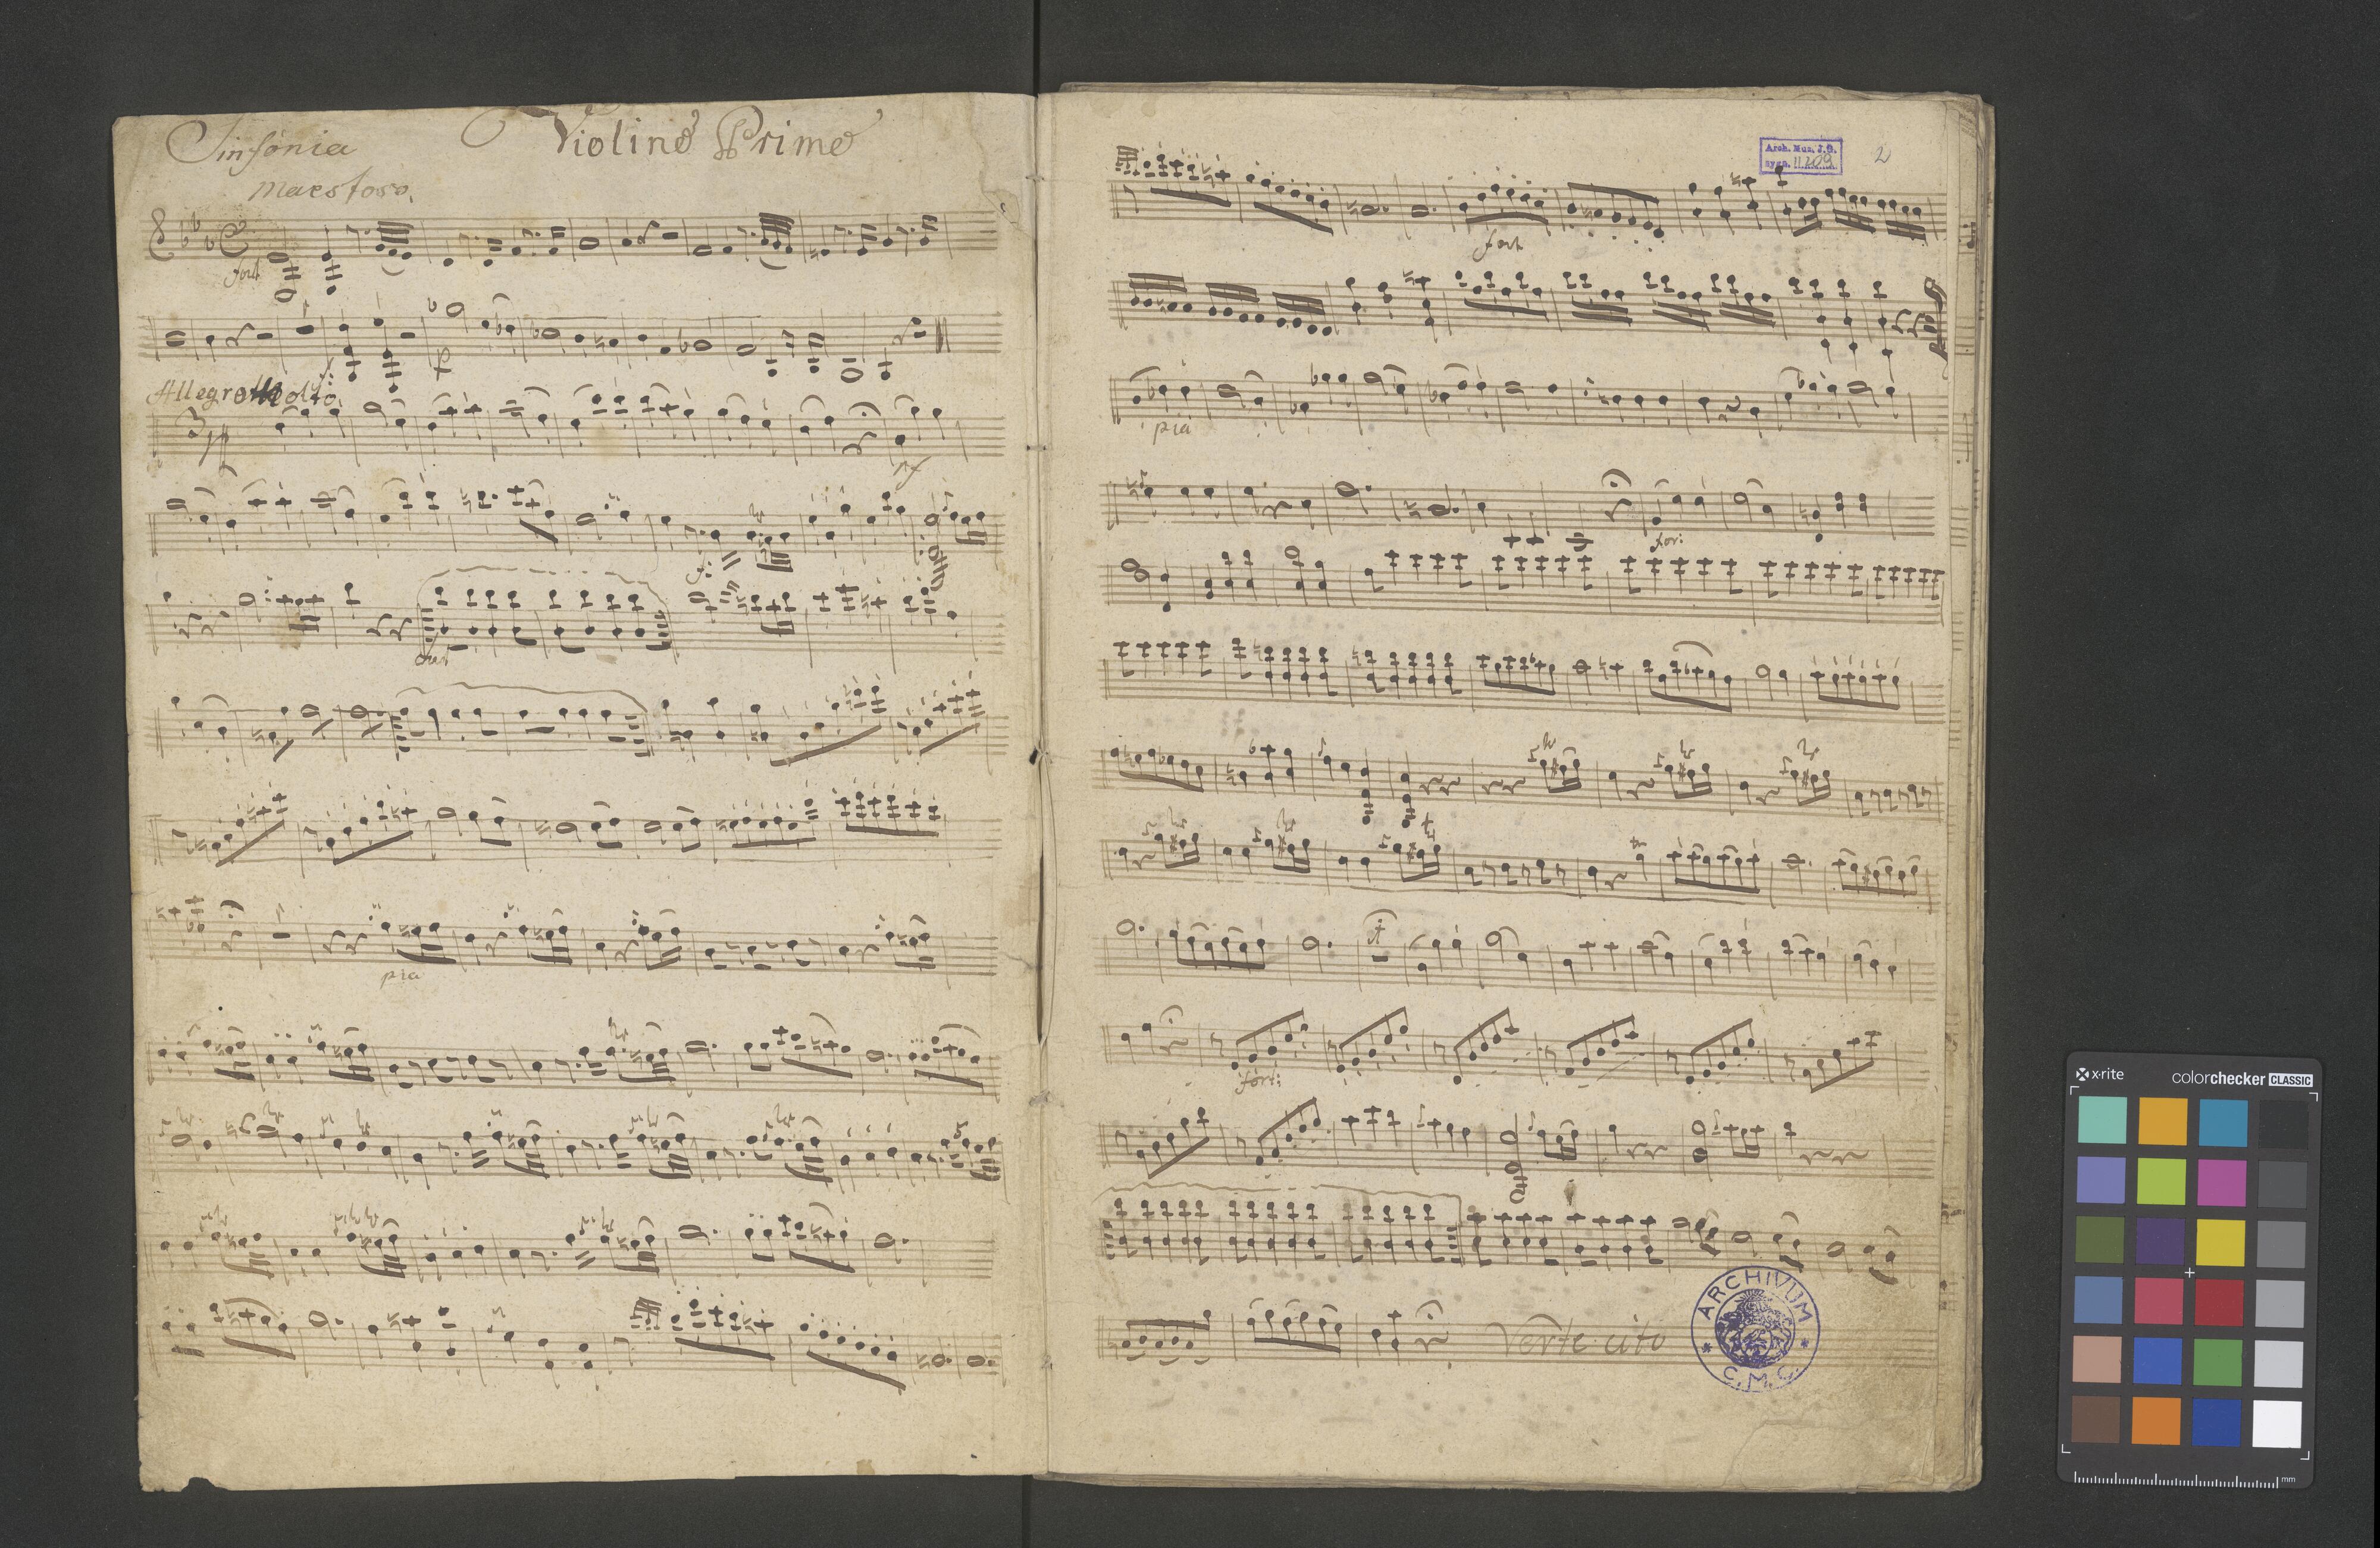 Sinfonia
Violino Primo
Maestoso.
fort
p
Allegro Molto
3/4
f:
pia
Arch. Mus. J.G.
sygn. II 209
2
fort
pia
for:
fort:
Verte cito
ARCHIVUM
C.M.C.
x-rite
colorchecker CLASSIC
mm